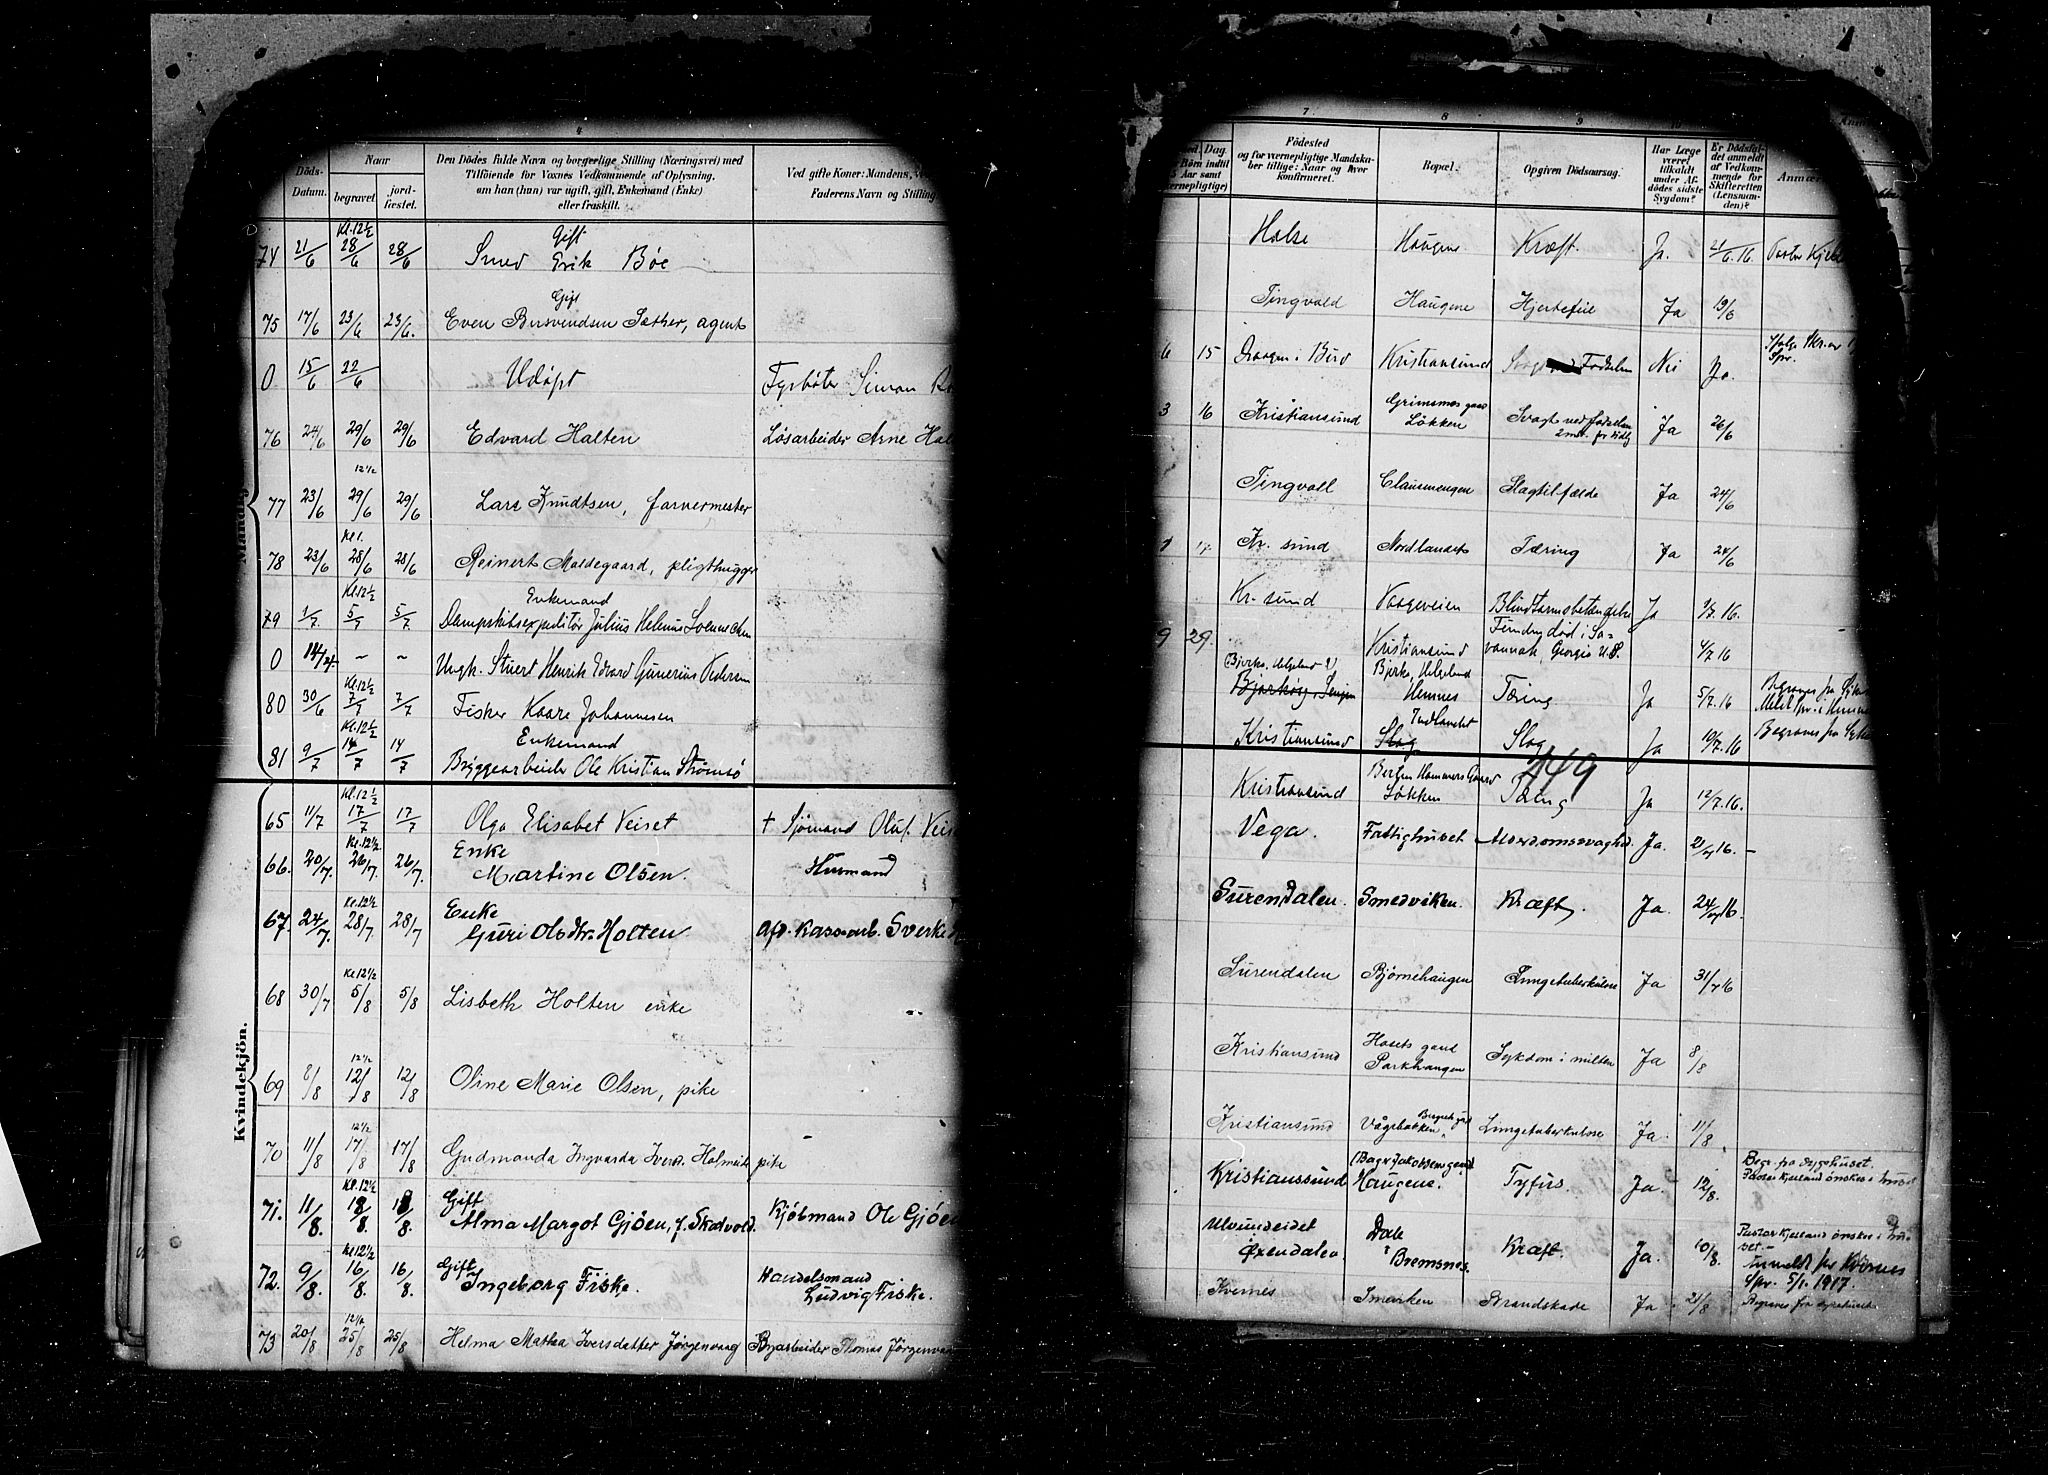 4
Döds-
Datum.
Naar
begravet
jord-
fæstet.
Den Dödes fulde Navn og borgerlige Stilling (Næringsvei) med
Tilföiende for Voxnes Vedkommende af Oplysning,
om han (hun) var ugift, gift, Enkemand (Enke)
eller fraskilt.
Ved gifte Koner: Mandens,
Faderens Navn og Stilling
Kl. 12½ Gift
74 21/6 28/6 28/6 Smed Erik Bøe
Gift
75 17/6 23/6 23/6. Even Busvendsen Sæther, agent
0 15/6 22/6 Udøpt Fyrbøter Simon
76 24/6 29/6 29/6 Edvard Halten Løsarbeider Arne
12½
77 23/6 29/6 29/6 Lars Knudtsen, farvermester
Kl 1.
78 23/6 28/6 28/6 Reinert Moldegaard, pligthugger
Kl. 12½ Enkemand
79 1/7 5/7 5/7 Dampskibsexpeditør Julius Helenus
0 14/4. ~ ~ Ungk. Stuert Henrik Edvard Gunerius Pedersen
Kl. 12½
80 30/6 7/7 7/7 Fisker Kaare Johannesen
Kl. 12½ Enkemand
81 9/7 14/7 14/7 Bryggearbeider Ole Kristian Strømsø
Kvindekjön.
Kl. 12½
65 11/7 17/7 17/7 Olga Elisabet Veiset † Sjømand Oluf
Kl. 12½ Enke
66. 20/7. 26/7. 26/7. Martine Olsen. Husmand
Kl. 12½ Enke
67. 24/7. 28/7. 28/7 Guri Olsdtr. Holten. Afd. kassearb. Sverke
Kl 12½
68 30/7 5/8 5/8 Lisbeth Holten enke
12½
69 8/8 12/8 12/8 Oline Marie Olsen, pike
12½
70 11/8 17/8 17/8 Gudmunda Ingvarda Iversd. pike
Kl. 12½ Gift
71. 11/8. 18/8. 18/8. Alma Margot Gjøen, f. Skatvold. Kjøbmand Ole Gjøen
Kl 12½ Gift
72. 9/8. 16/8. 16/8. Ingeborg Fiske. Handelsmand
Ludvig Fiske.
12½
73 20/8 25/8 25/8 Helma Mathea Iversdatter Jørgenvaag Byarbeider Thomas
7
8
9
Dag.
Börn indtil
5 Aar samt
ærnepligtige)
Födested
og for værnepligtige Mandska-
ber tillige: Naar og hvor
konfirmeret.
Bopæl.
Opgiven Dödsaarsag.
Har Læge
været
tilkaldt
under Af-
dödes sidste
Sygdom?
Er Dödsfal-
det anmeldt
af Vedkom-
mende for
Skifteretten
(Lensman-
den)?
Halse Haugene Kræft. Ja. 21/6.16.
Tingvold Haugene Hjertefeil Ja 19/6
6 15 Kristiansund Svagt Fødselen Nei Ja.
3 16 Kristiansund Grimsmos gaard
Løkken Svagt ved fødselen
2 md. for tidlig Ja 26/6
Tingvoll Clausenengen Slagtilfælde Ja 24/6
17 Kr. sund Nordlandet Tæring Ja 24/6
Kr. sund Vaageveien Blindtarmsbetændelse Ja 3/7.16.
9 29. Kristiansund Funden død i Sa-
vannah, Georgia U.S. 4/7.16
Bjerka, Helgeland Bjerka, Helgeland
Hemnes Tæring. Ja 5/7.16
Kristiansund Indlandet Slag Ja 10/7.16
449
Kristiansund Løkken Tæring Ja 12/7.16.
Vega. Fattighuset Alderdomssvaghed. Ja. 21/7 16. –
Surendalen. Smedviken. Kræft. Ja. 24/7 16.
Surendalen Bjørnehaugen Lungetuberkulose Ja 31/7 16
Kristiansund Hosets gaard
Parkhaugen Sykdom i milten Ja 8/8
Kristiansund Vågebakken Lungetuberkulose Ja. 11/8
Kristianssund (Bager Jakobsens gaard)
Haugene. Tyfus. Ja. 12/8. Begr. fra sygehuset.
Ulvundeidet
Øxendalen. Dale
i Bremsnes. Kræft. Ja. 10/8. Pastor Kjelland ønskes i hu-
set.–
Anmeldt for Kvernes
Spr. 5/1. 1917.
Kvernes Smerken Brandskade Ja. 21/8 Begraves fra sykehuset